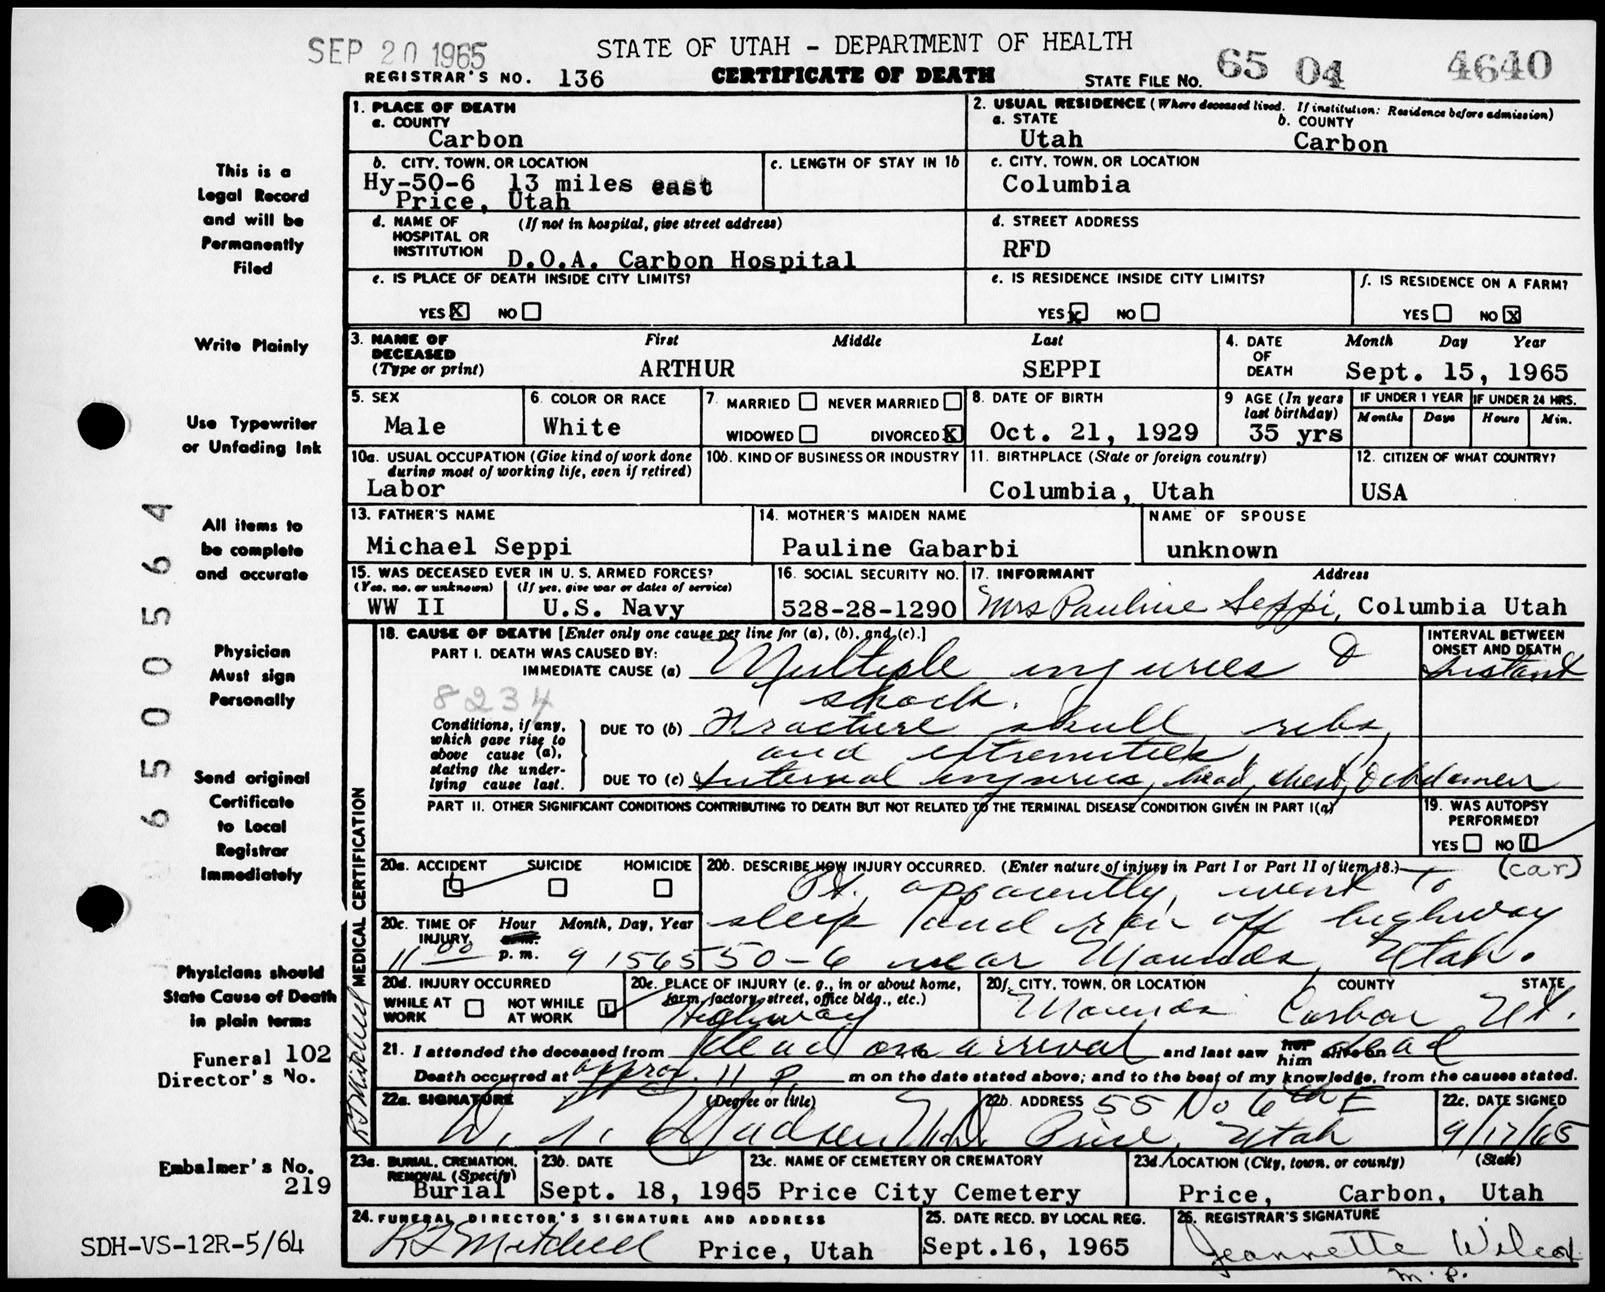 SEP 20 1965
STATE OF UTAH - DEPARTMENT OF HEALTH
REGISTRAR'S NO. 136
CERTIFICATE OF DEATH
STATE FILE NO. 65 04 4640
This is a
Legal Record
and will be
Permanently
Filed
Write Plainly
Use Typewriter
or Unfading Ink
All items to
be complete
and accurate
Physician
Must sign
Personally
Send original
Certificate
to Local
Registrar
Immediately
Physicians should
State Cause of Death
in plain terms
Funeral 102
Director's No.
Embalmer's No.
219
SDH-VS-12R-5/64
65500564
1. PLACE OF DEATH
a. COUNTY
Carbon
2. USUAL RESIDENCE (Where deceased lived. If institution: Residence before admission)
a. STATE b. COUNTY
Utah Carbon
b. CITY, TOWN, OR LOCATION
Hy-50-6 13 miles east
Price, Utah
c. LENGTH OF STAY IN 1b
c. CITY, TOWN, OR LOCATION
Columbia
d. NAME OF HOSPITAL OR INSTITUTION (If not in hospital, give street address)
D.O.A. Carbon Hospital
d. STREET ADDRESS
RFD
e. IS PLACE OF DEATH INSIDE CITY LIMITS?
YES X NO
e. IS RESIDENCE INSIDE CITY LIMITS?
YES X NO
f. IS RESIDENCE ON A FARM?
YES NO X
3. NAME OF DECEASED (Type or print)
First Middle Last
ARTHUR SEPPI
4. DATE OF DEATH
Month Day Year
Sept. 15, 1965
5. SEX
Male
6. COLOR OR RACE
White
7. MARRIED NEVER MARRIED
WIDOWED DIVORCED X
8. DATE OF BIRTH
Oct. 21, 1929
9 AGE (In years last birthday)
35 yrs
IF UNDER 1 YEAR
Months Days
IF UNDER 24 HRS.
Hours Min.
10a. USUAL OCCUPATION (Give kind of work done
during most of working life, even if retired)
Labor
10b. KIND OF BUSINESS OR INDUSTRY
11. BIRTHPLACE (State or foreign country)
Columbia, Utah
12. CITIZEN OF WHAT COUNTRY?
USA
13. FATHER'S NAME
Michael Seppi
14. MOTHER'S MAIDEN NAME
Pauline Gabarbi
NAME OF SPOUSE
unknown
15. WAS DECEASED EVER IN U. S. ARMED FORCES?
(Yes, no, or unknown) (If yes, give war or dates of service)
WW II U.S. Navy
16. SOCIAL SECURITY NO.
528-28-1290
17. INFORMANT Address
Mrs Pauline Seppi, Columbia Utah
MEDICAL CERTIFICATION
18. CAUSE OF DEATH [Enter only one cause per line for (a), (b), and (c).]
PART I. DEATH WAS CAUSED BY:
IMMEDIATE CAUSE (a) Multiple injuries &
shock.
8234
Conditions, if any,
which gave rise to
above cause (a),
stating the under-
lying cause last.
DUE TO (b) Fracture skull, ribs,
and extremities,
DUE TO (c) Internal injuries, head, chest, & abdomen
INTERVAL BETWEEN
ONSET AND DEATH
Instant
PART II. OTHER SIGNIFICANT CONDITIONS CONTRIBUTING TO DEATH BUT NOT RELATED TO THE TERMINAL DISEASE CONDITION GIVEN IN PART I(a)
19. WAS AUTOPSY
PERFORMED?
YES NO
20a. ACCIDENT SUICIDE HOMICIDE
20b. DESCRIBE HOW INJURY OCCURRED. (Enter nature of injury in Part I or Part II of item 18.)
(car)
Pt. apparently went to
sleep and ran off highway
50-6 near Mounds, Utah.
20c. TIME OF INJURY
Hour Month, Day, Year
a.m.
11 00 p. m. 9 15 65
20d. INJURY OCCURRED
WHILE AT WORK NOT WHILE AT WORK
20e. PLACE OF INJURY (e. g., in or about home,
farm, factory, street, office bldg., etc.)
Highway
20f. CITY, TOWN, OR LOCATION COUNTY STATE
Mounds Carbon Ut.
21. I attended the deceased from dead on to arrival and last saw her him alive on dead
Death occurred at approx. 11 P. m on the date stated above; and to the best of my knowledge, from the causes stated.
22a. SIGNATURE (Degree or title)
Madsen M.D.
22b. ADDRESS 55 No 6th E
Price, Utah
22c. DATE SIGNED
9/17/65
23a. BURIAL, CREMATION,
REMOVAL (Specify)
Burial
23b. DATE
Sept. 18, 1965
23c. NAME OF CEMETERY OR CREMATORY
Price City Cemetery
23d. LOCATION (City, town, or county) (State)
Price, Carbon, Utah
24. FUNERAL DIRECTOR'S SIGNATURE AND ADDRESS
Mitchell Price, Utah
25. DATE RECD. BY LOCAL REG.
Sept.16, 1965
26. REGISTRAR'S SIGNATURE
Jeannette Wilcox
m.p.